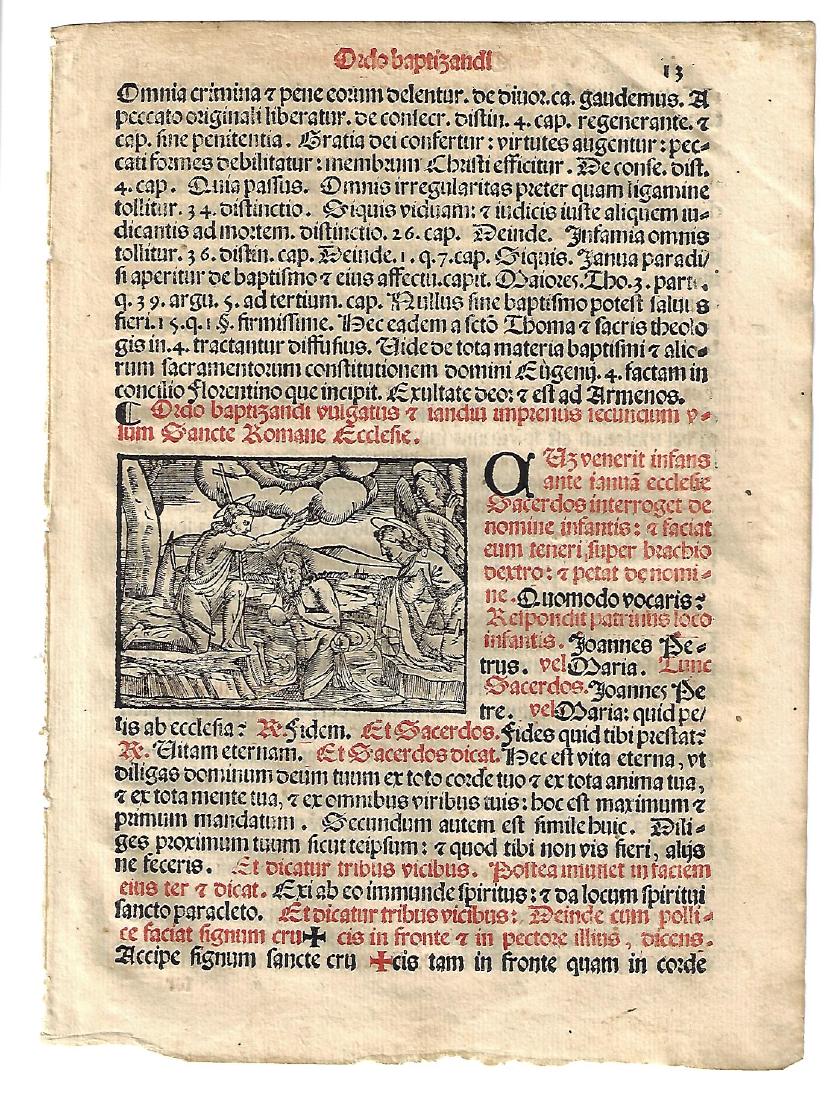 Ordo baptizandi
13
Omnia crimina ⁊ pene eorum delentur. de diuor. ca. gaudemus. A
peccato originali liberatur. de consecr. distin. 4. cap. regenerante. ⁊
cap. sine penitentia. Gratia dei confertur: virtutes augentur: pec-
cati fomes debilitatur: membrum Christi efficitur. De conse. dist.
4. cap. Quia passus. Omnis irregularitas preter quam ligamine
tollitur. 34. distinctio. Siquis viduam: ⁊ iudicis iuste aliquem iu-
dicantis ad mortem. distinctio. 26. cap. Deinde. Infamia omnis
tollitur. 36. distin. cap. Deinde. 1. q. 7. cap. Siquis. Ianua paradi/
si aperitur de baptismo ⁊ eius affectu. capit. Maiores. Tho. 3. part.
q. 39. argu. 5. ad tertium. cap. Nullus sine baptismo potest saluus
fieri. 15. q. 1. §. firmissime. Hec eadem a scto Thoma ⁊ sacris theolo
gis in. 4. tractantur diffusius. Uide de tota materia baptismi ⁊ alio-
rum sacramentorum constitutionem domini Eugenij. 4. factam in
concilio florentino que incipit. Exultate deo: ⁊ est ad Armenos.
¶ Ordo baptizandi vulgatus ⁊ iandiu impressus secundum v-
sum Sancte Romane Ecclesie.
CUz venerit infans
ante ianuā ecclesie
Sacerdos interroget de
nomine infantis: ⁊ faciat
eum teneri super brachio
dextro: ⁊ petat de nomi-
ne. Quomodo vocaris?
Respondit patrinus loco
infantis. Joannes Pe-
trus. vel Maria. Tunc
Sacerdos. Joannes Pe
tre. vel Maria: quid pe/
tis ab ecclesia? ℟. fidem. Et Sacerdos. Fides quid tibi prestat?
℟. Uitam eternam. Et Sacerdos dicat. Hec est vita eterna, vt
diligas dominum deum tuum ex toto corde tuo ⁊ ex tota anima tua,
⁊ ex tota mente tua, ⁊ ex omnibus viribus tuis: hoc est maximum ⁊
primum mandatum. Secundum autem est simile huic. Dili-
ges proximum tuum sicut teipsum: ⁊ quod tibi non vis fieri, alijs
ne feceris. Et dicatur tribus vicibus. Postea insuflet in faciem
eius ter ⁊ dicat. Exi ab eo immunde spiritus: ⁊ da locum spiritui
sancto paracleto. Et dicatur tribus vicibus: Deinde cum polli-
ce faciat signum cru✚ cis in fronte ⁊ in pectore illius, dicens.
Accipe signum sancte cru ✚cis tam in fronte quam in corde